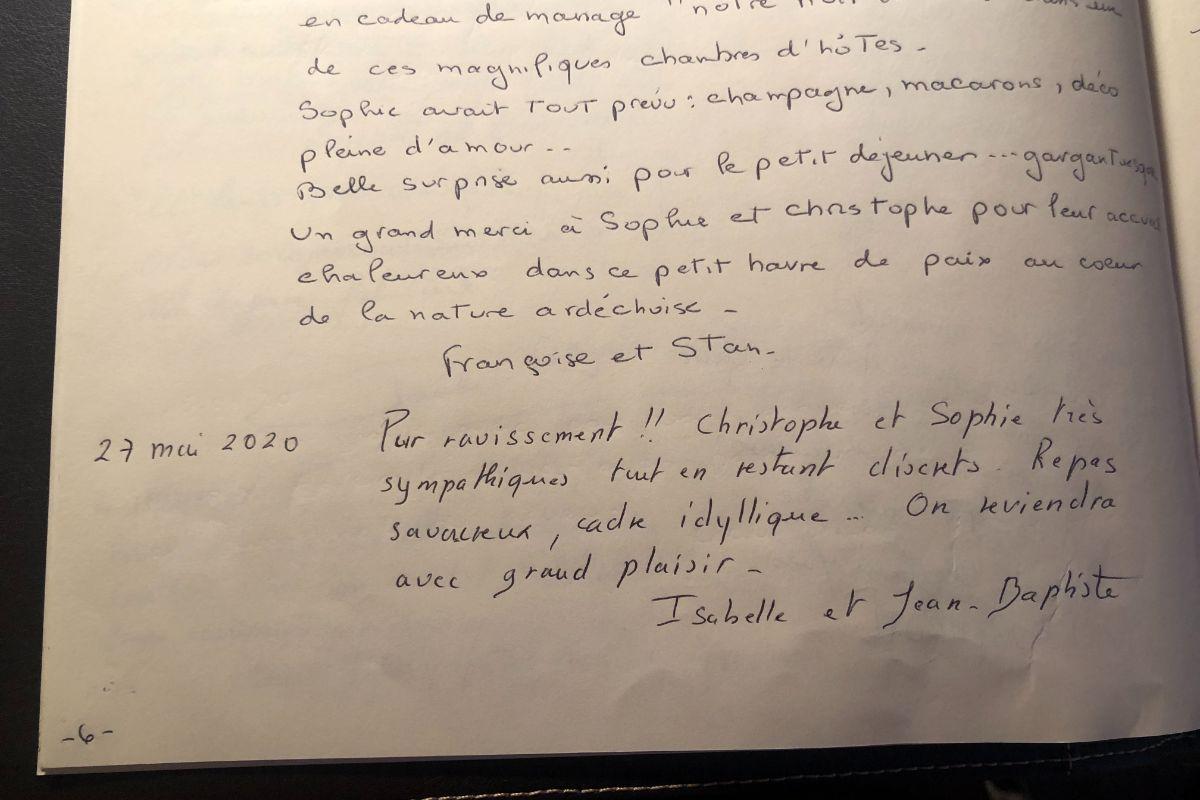 en cadeau de mariage "notre
de ces magnifiques chambres d'hôTes -
Sophie avait TOUT prévu : champagne, macarons, déco
pleine d'amour --
Belle surprise aussi pour le petit déjeuner --- gargantuesque
Un grand merci à Sophie et Christophe pour leur accueil
chaleureux dans ce petit havre de paix au coeur
de la nature ardéchoise -
Françoise et Stan -
27 mai 2020
Pur ravissement !! Christophe et Sophie très
sympathiques tout en restant discrets. Repas
savoureux, cadre idyllique ... On reviendra
avec grand plaisir -
Isabelle et Jean-Baptiste
-6-